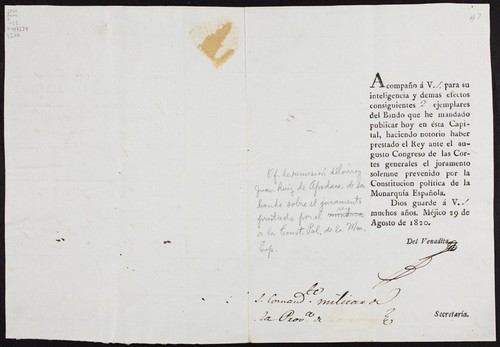 Acompaño á V. S. para su
inteligencia y demas efectos
consiguientes 2 ejemplares
del Bando que he mandado
publicar hoy en ésta Capi-
tal, haciendo notorio haber
prestado el Rey ante el au-
gusto Congreso de las Cor-
tes generales el juramento
solemne prevenido por la
Constitucion política de la
Monarquía Española.
Dios guarde á V. S.
muchos años. Méjico 29 de
Agosto de 1820.
Del Venadito
Of. de remisión del virrey
Juan Ruiz de Apodaca, de su
bando sobre el juramento
prestado por el rey
a la Const. Pol. de la Mon.
Esp.
S. Comand.te militar de
la Prov.a de
Secretaría.